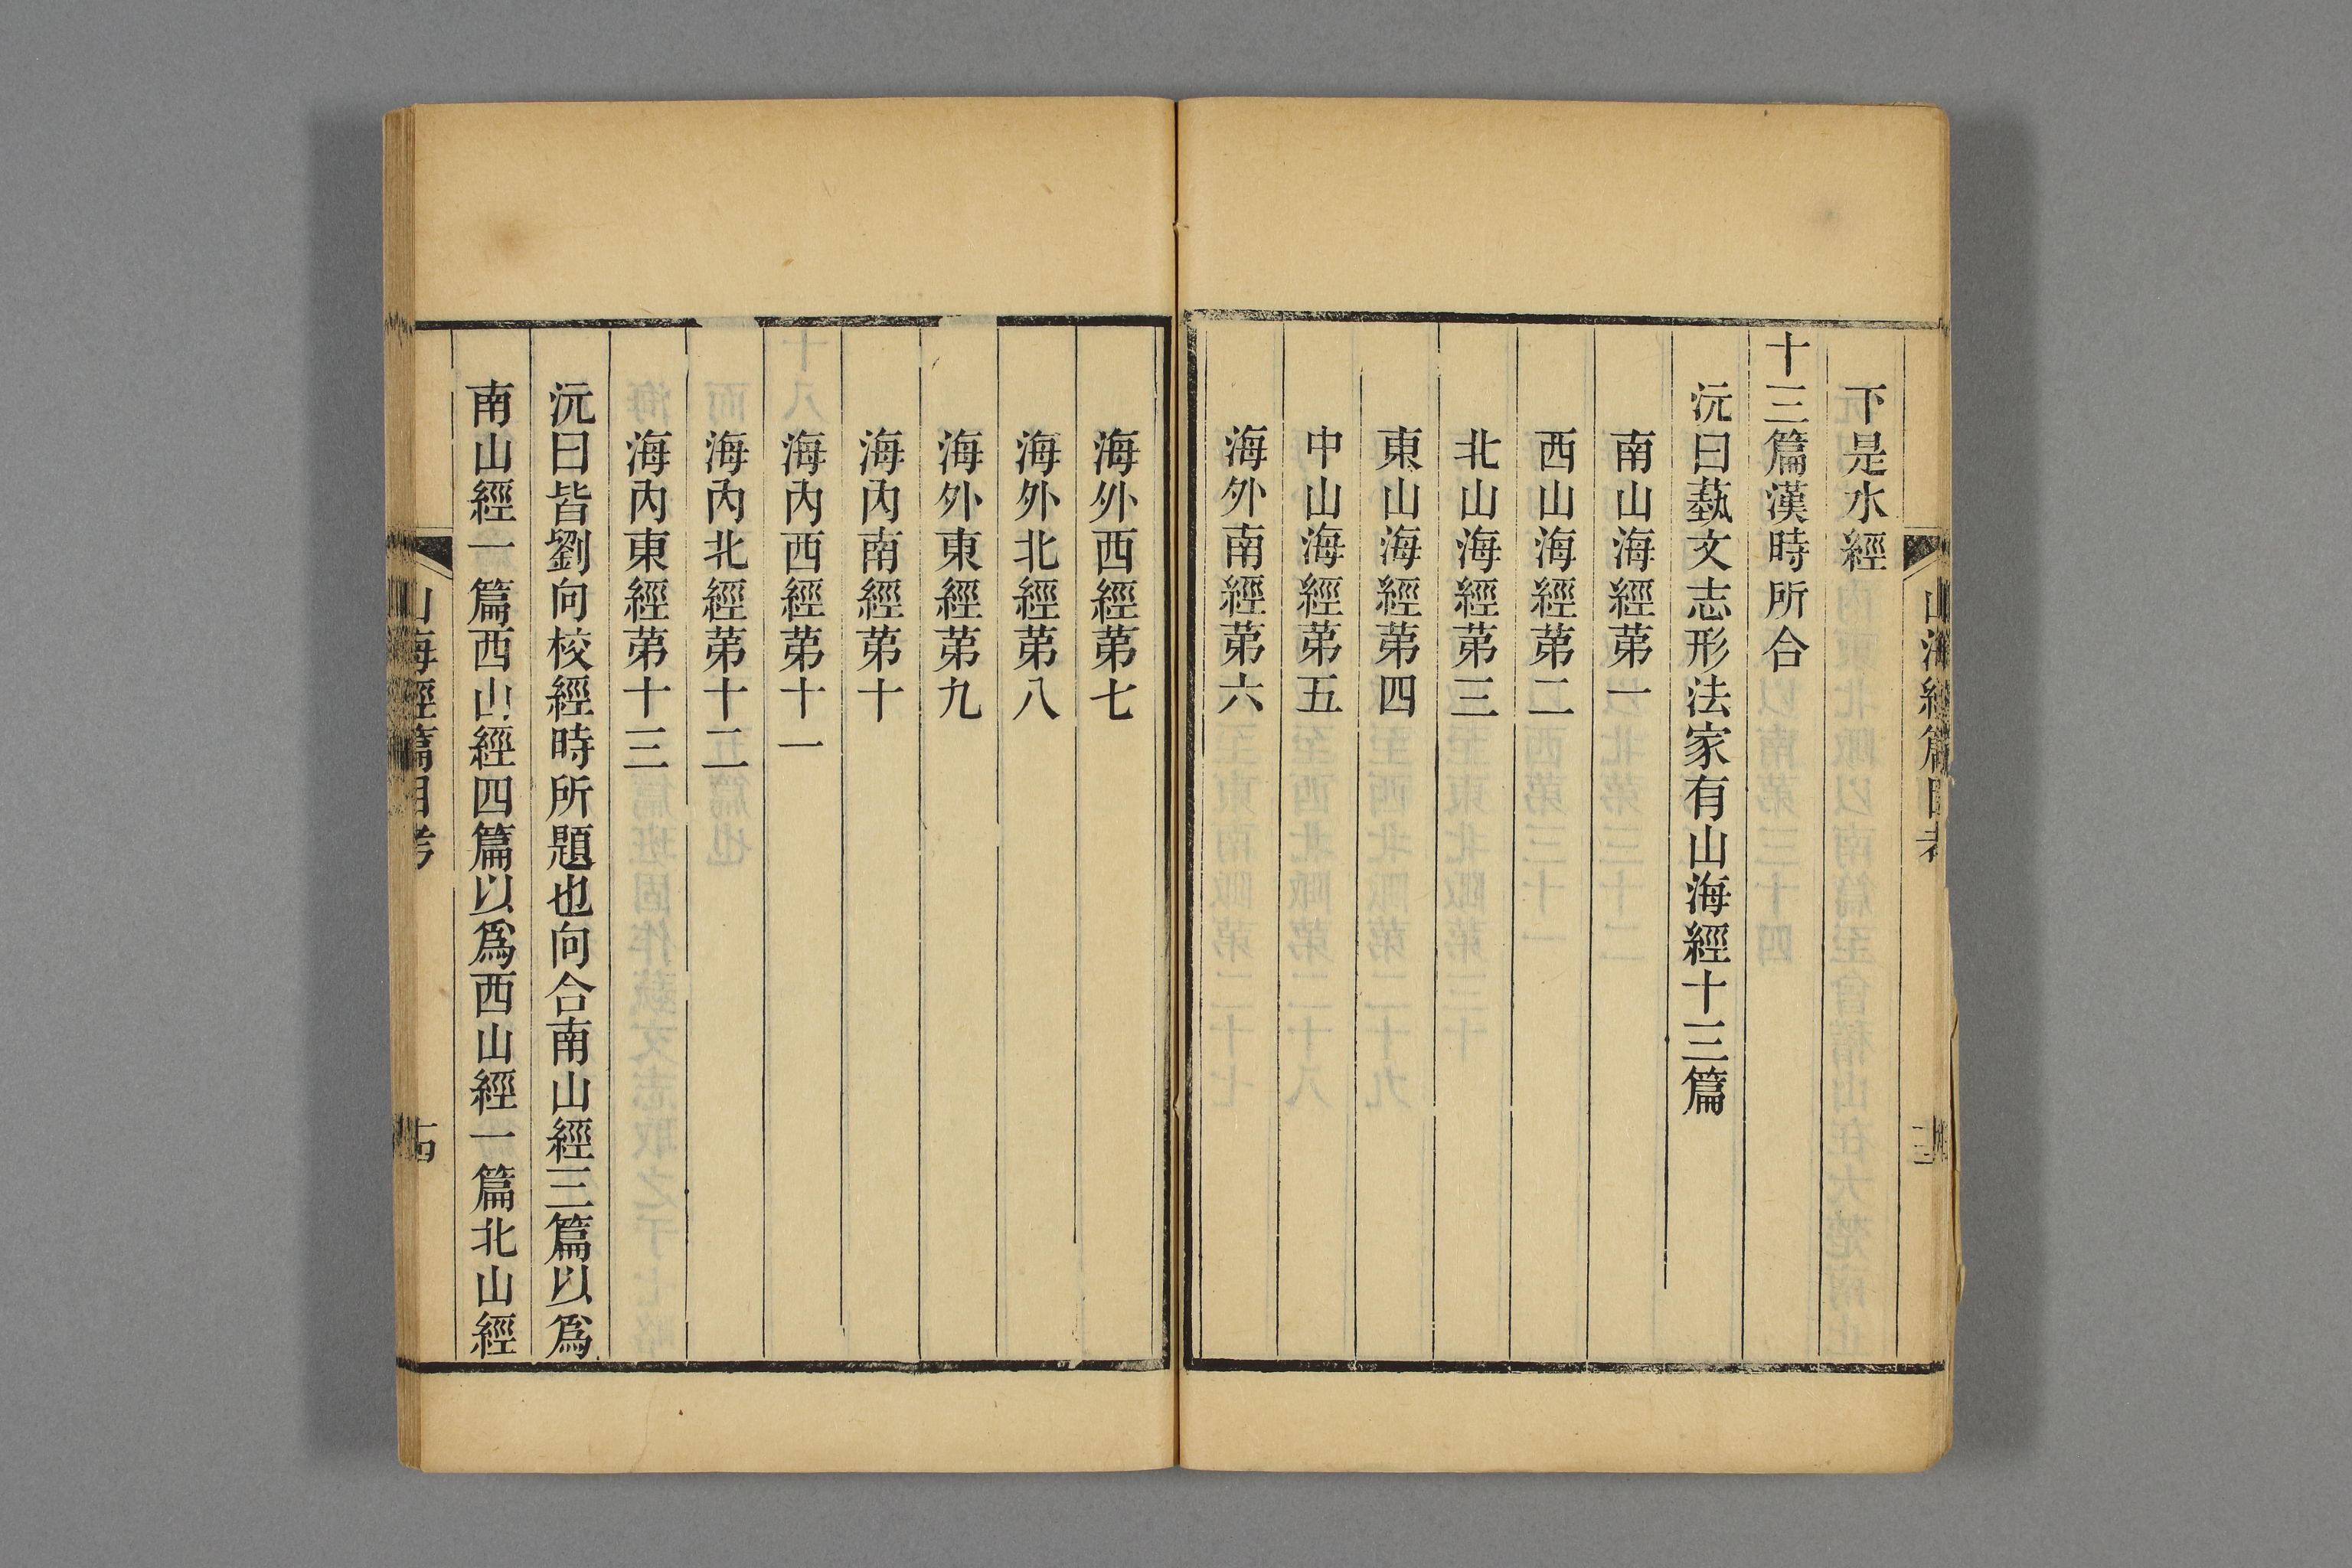 山海經篇目考
下是水經
十三篇漢時所合
沅曰蓺文志形法家有山海經十三篇
南山海經苐一
西山海經苐二
北山海經苐三
東山海經苐四
中山海經苐五
海外南經苐六
海外西經苐七
海外北經苐八
海外東經苐九
海內南經苐十
海內西經苐十一
海內北經苐十二
海內東經苐十三
沅曰皆劉向校經時所題也向合南山經三篇以爲
南山經一篇西山經四篇以爲西山經一篇北山經
山海經篇目考
十四